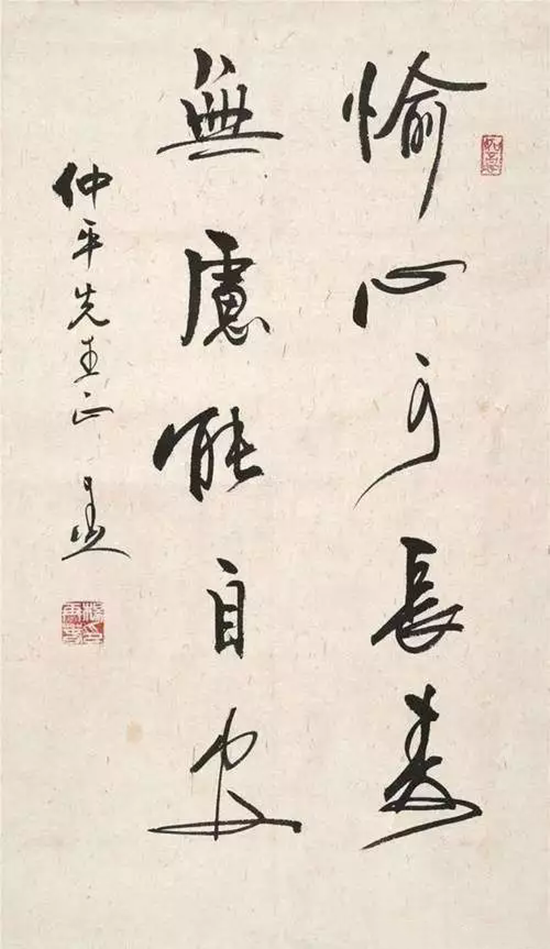 愉心可長壽
無慮能自安
仲平先生正